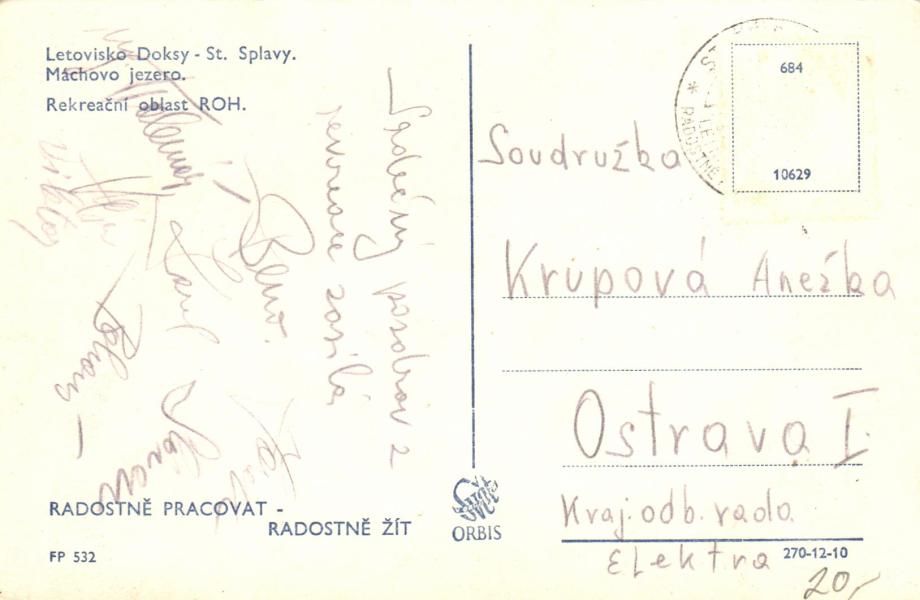 Letovisko Doksy - St. Splavy.
Máchovo jezero.
Rekreační oblast ROH.
Srdečný pozdrav z
rekreace zasílá
Beno.
Karel
Viktor
RADOSTNĚ PRACOVAT -
RADOSTNĚ ŽÍT
FP 532
ORBIS
684
10629
Soudružka
Krupová Anežka
Ostrava I.
Kraj. odb. rada
Elektra
270-12-10
20,-